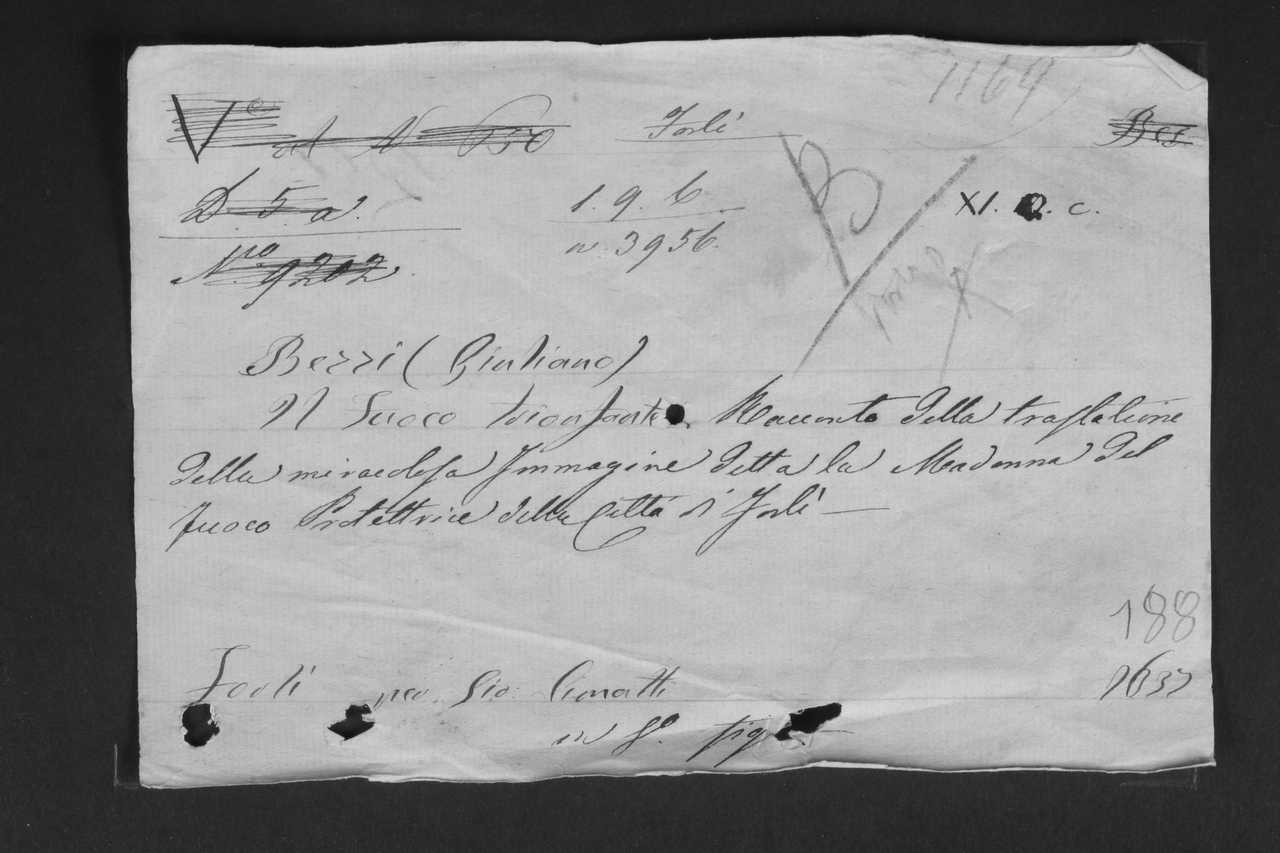 1164
V.e al N 650 Forlì Bes
D. 5. a. 1. 9. 6. B XI. Q. c.
N.ro 9202 n. 3956.
Bezzi (Giuliano)
Il Fuoco trionfante. Racconto della traslatione
della miracolosa Immagine detta la Madonna del
fuoco Protettrice della Città di Forlì —
188
Forlì per Gio. Cimatti 1637
in 8.o fig